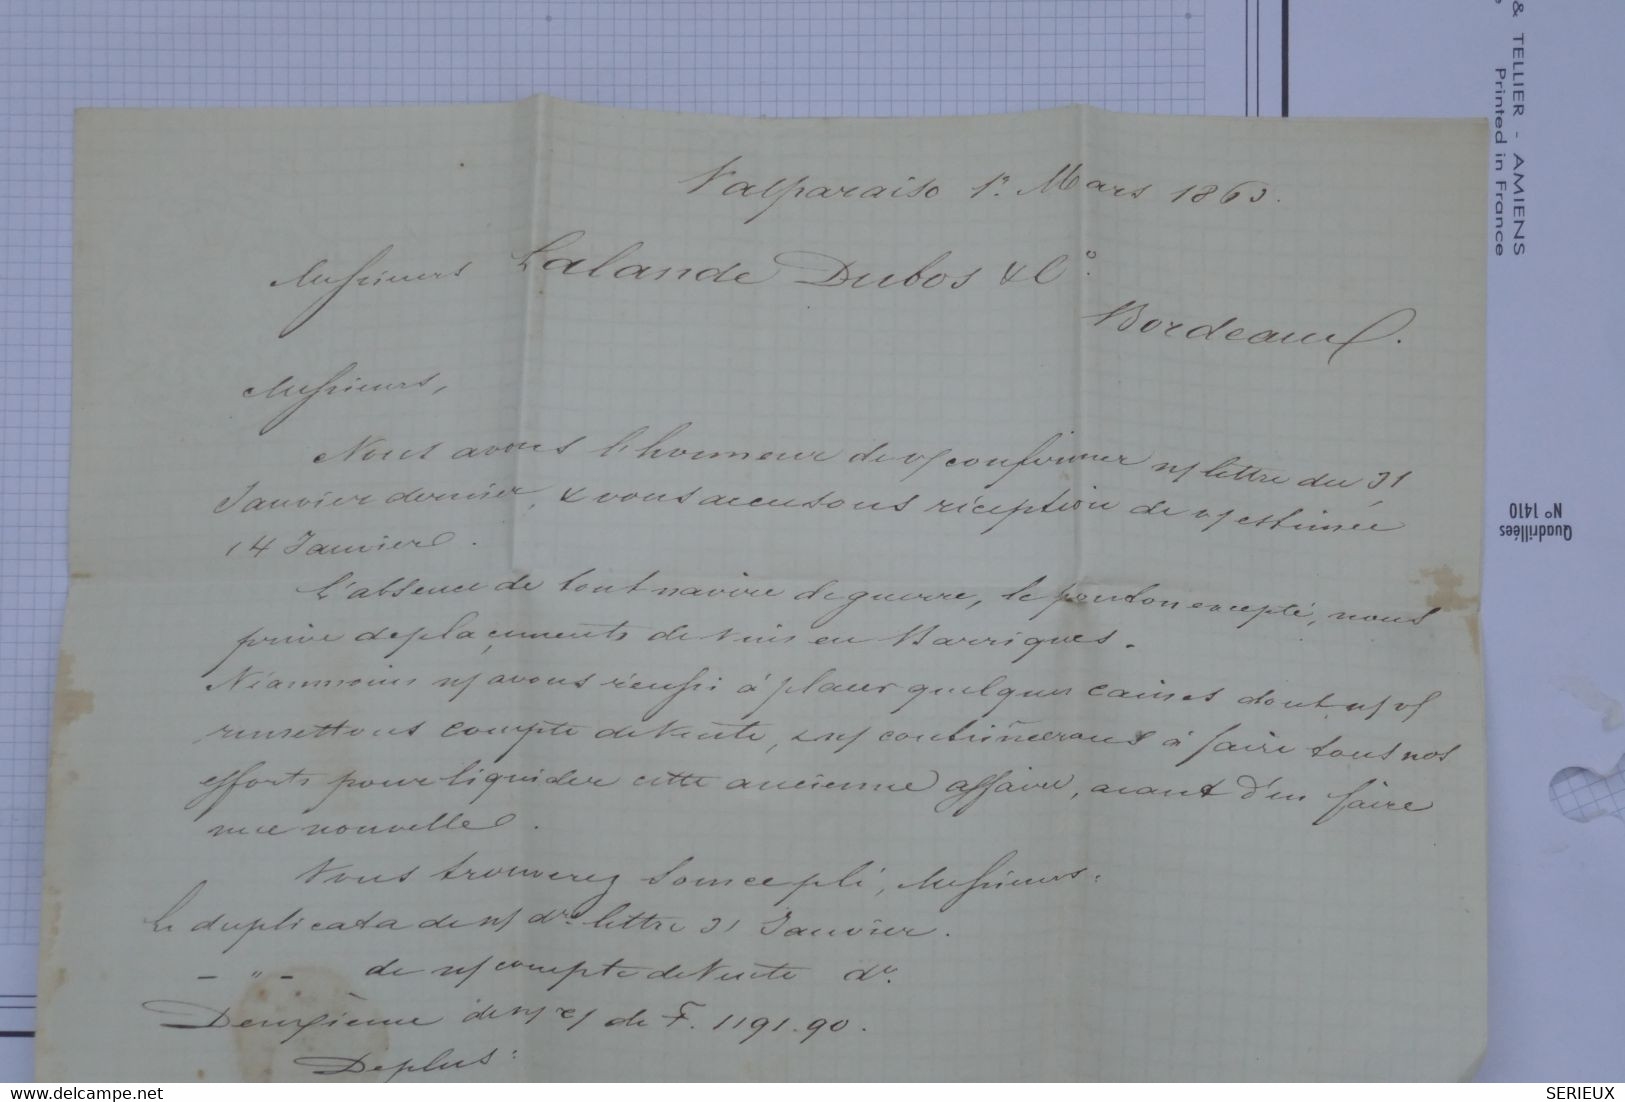 & TELLIER - AMIENS
Printed in France
Quadrillées
N° 1410
Valparaiso 1º Mars 1863.
Messieurs Lalande Dubos & Cº.
Bordeaux.
Messieurs,
Nous avons l'honneur de v/ confirmer n/ lettre du 31
Janvier dernier, & vous accusons réception de v/ estimée
14 Janvier.
L'absence de tout navire de guerre, le ponton excepté, nous
prive de plaçements de vins en Barriques.
Néanmoins n/ avons réussi à placer quelques caisses dont n/ v/
remettons compte de vente, & n/ continuerons à faire tous nos
efforts pour liquider cette ancienne affaire, avant d'en faire
une nouvelle.
Vous trouverez sous ce pli, Messieurs:
Le duplicata de n/ dre lettre 31 Janvier.
- " - de n/ compte de Vente do.
Deuxième de n/ r/ de F. 1191.90.
De plus:
delcampe.net
SERIEUX